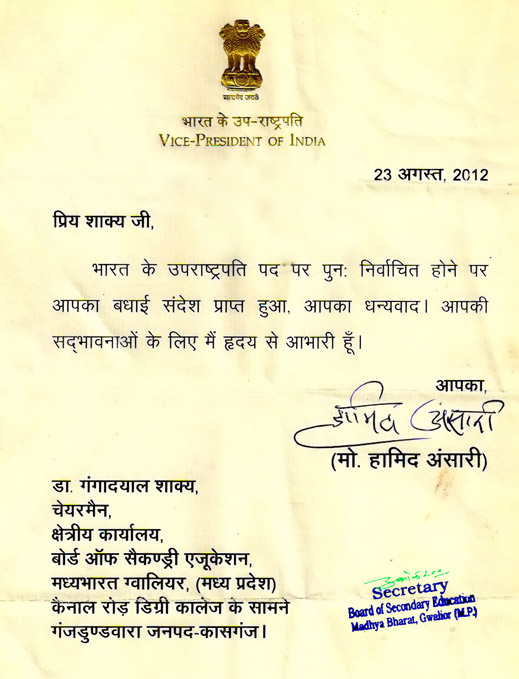 सत्यमेव जयते
भारत के उप-राष्ट्रपति
VICE-PRESIDENT OF INDIA
23 अगस्त, 2012
प्रिय शाक्य जी,
भारत के उपराष्ट्रपति पद पर पुन: निर्वाचित होने पर
आपका बधाई संदेश प्राप्त हुआ, आपका धन्यवाद। आपकी
सद्‌भावनाओं के लिए मैं हृदय से आभारी हूँ।
आपका,
हामिद अंसारी
(मो. हामिद अंसारी)
डा. गंगादयाल शाक्य,
चेयरमैन,
क्षेत्रीय कार्यालय,
बोर्ड ऑफ सैकण्ड्री एजूकेशन,
मध्यभारत ग्वालियर, (मध्य प्रदेश)
कैनाल रोड़ डिग्री कालेज के सामने
गंजडुण्डवारा जनपद-कासगंज।
Secretary
Board of Secondary Education
Madhya Bharat, Gwalior (M.P.)